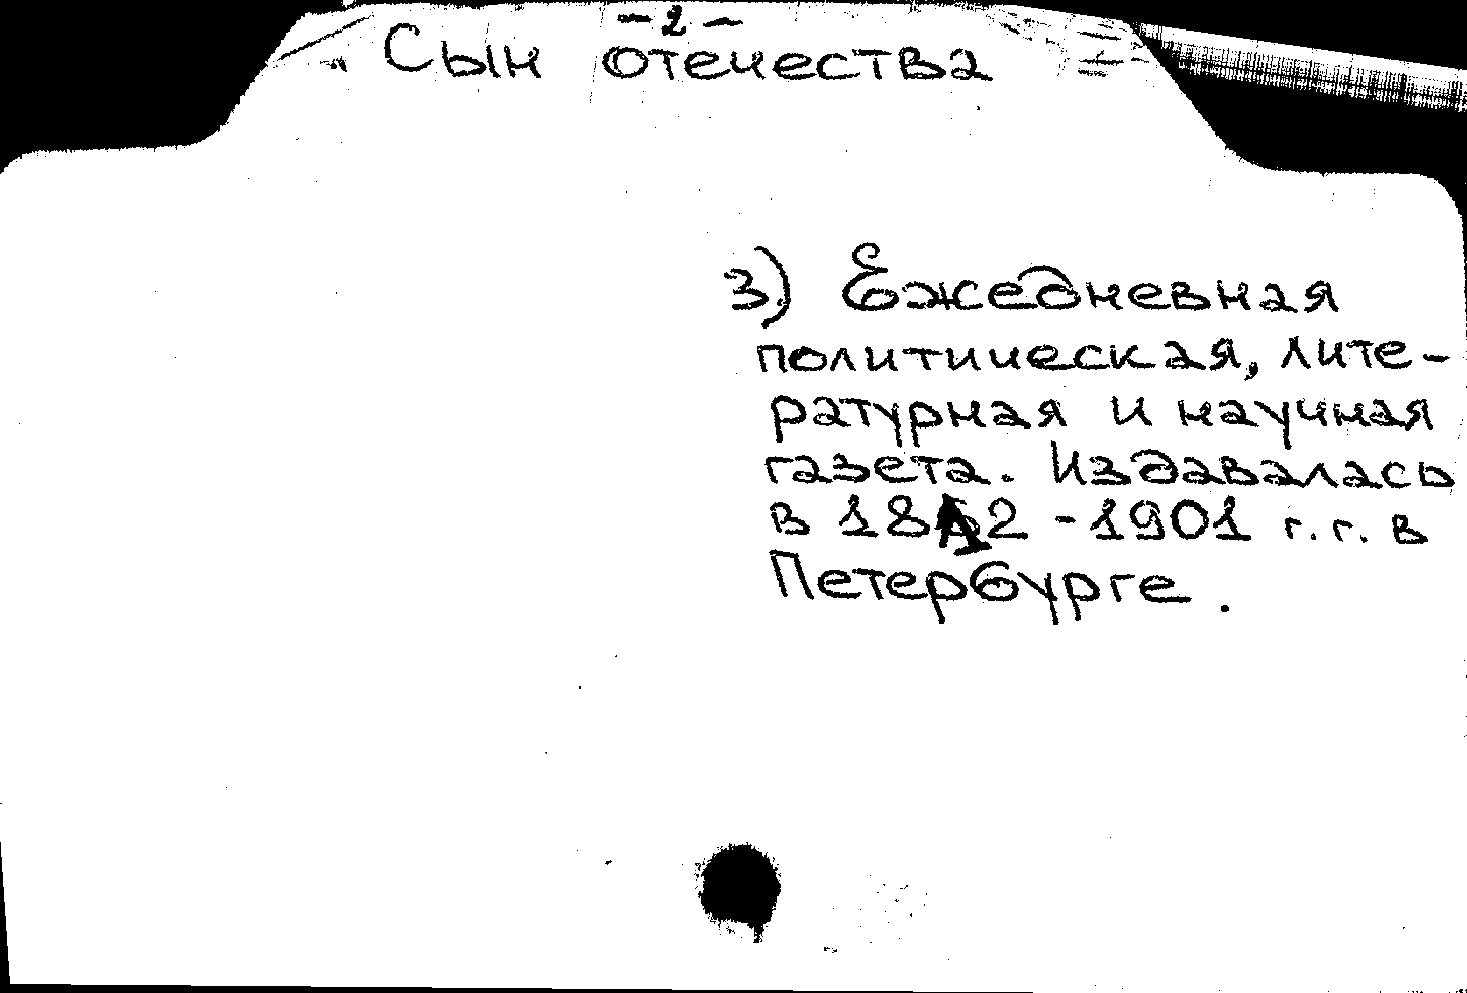 - 2 -
Сын отечества
3) Ежедневная
политическая, лите-
ратурная и научная
газета. Издавалась
в -1901 г.г. в
Петербурге.